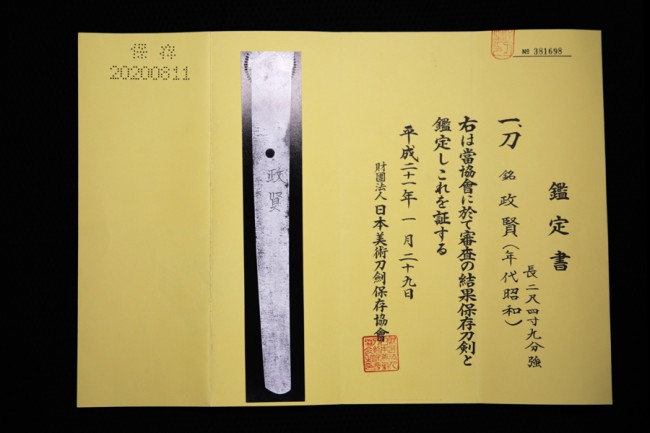 № 381698
鑑定書
一、刀 銘 政賢(年代昭和)
長二尺四寸九分強
右は當協會に於て審査の結果保存刀剣と
鑑定しこれを証する
平成二十一年一月二十九日
財團法人 日本美術刀劍保存協會
政賢
保存
20200811